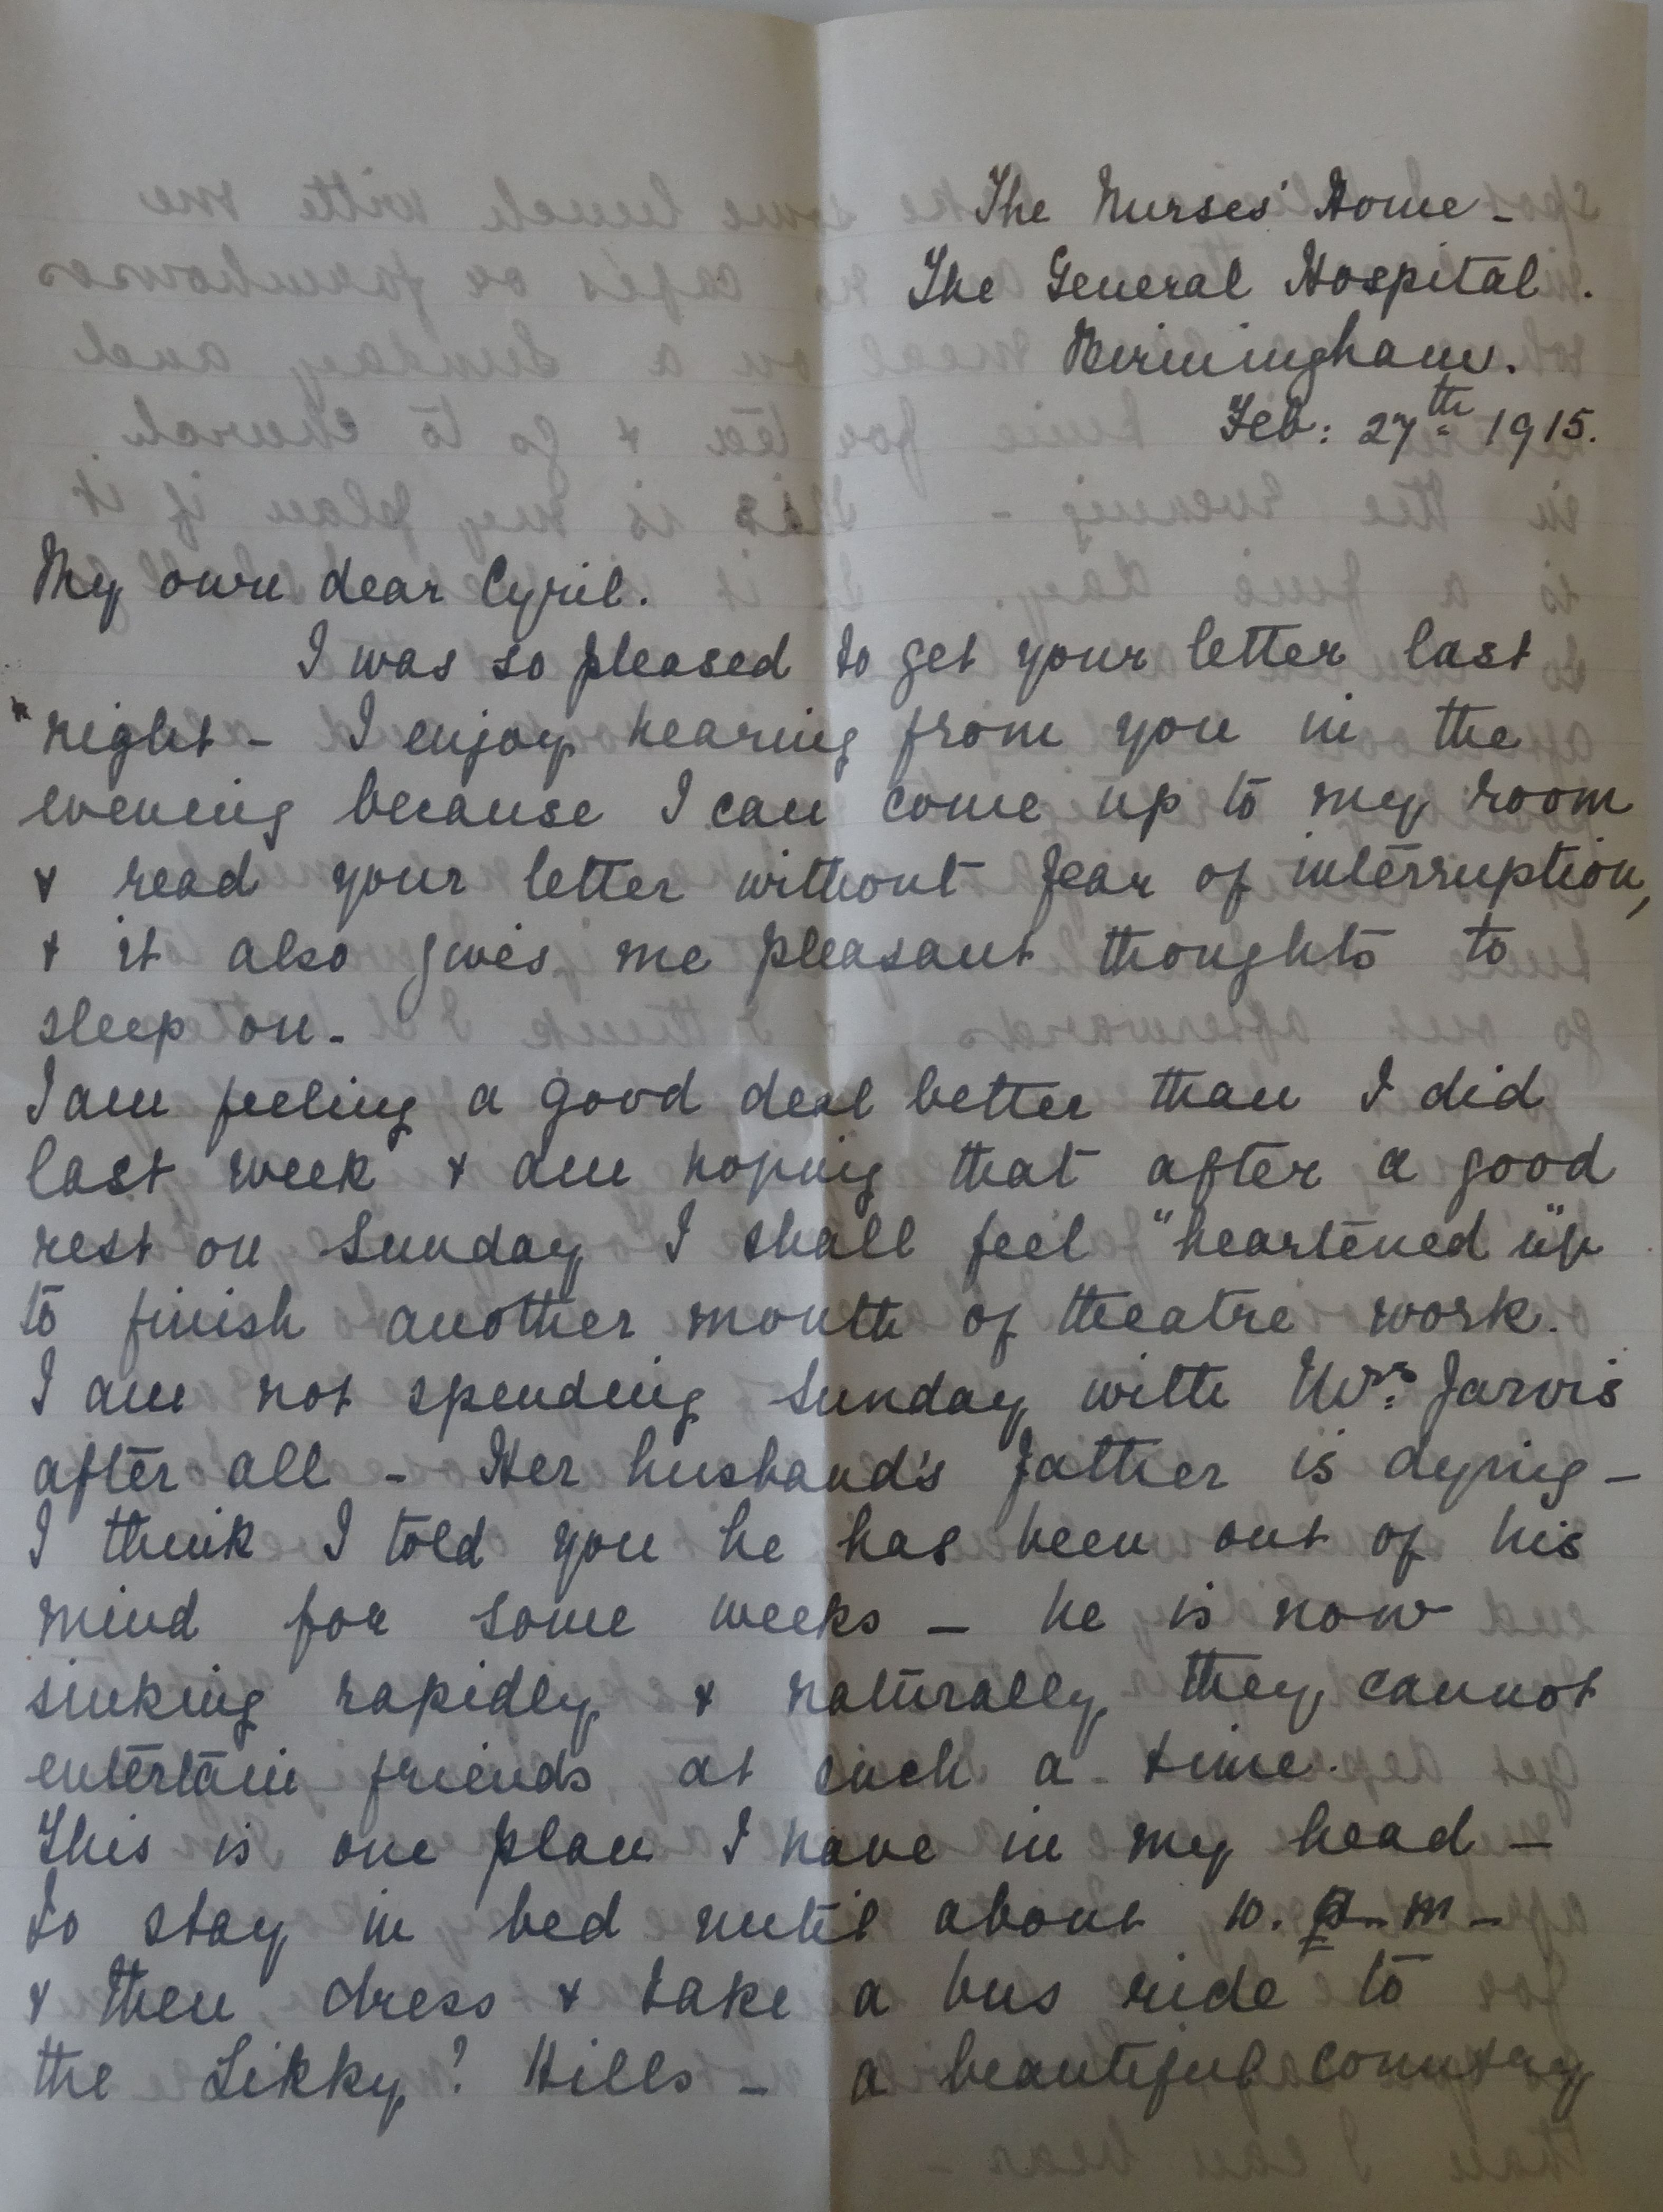 The Nurses' Home -
The General Hospital.
Birmingham.
Feb: 27th 1915.
My own dear Cyril.
I was so pleased to get your letter last
night - I enjoy hearing from you in the
evening because I can come up to my room
& read your letter without fear of interruption,
& it also gives me pleasant thoughts to
sleep on -
I am feeling a good deal better than I did
last week & am hoping that after a good
rest on Sunday I shall feel "heartened up"
to finish another month of theatre work.
I am not spending Sunday with Mrs. Jarvis
after all - Her husband's father is dying -
I think I told you he has been out of his
mind for some weeks - he is now
sinking rapidly & naturally they cannot
entertain friends at such a time.
This is one plan I have in my head -
to stay in bed until about 10. a.m -
& then dress & take a bus ride to
the Likky? Hills - a beautiful country